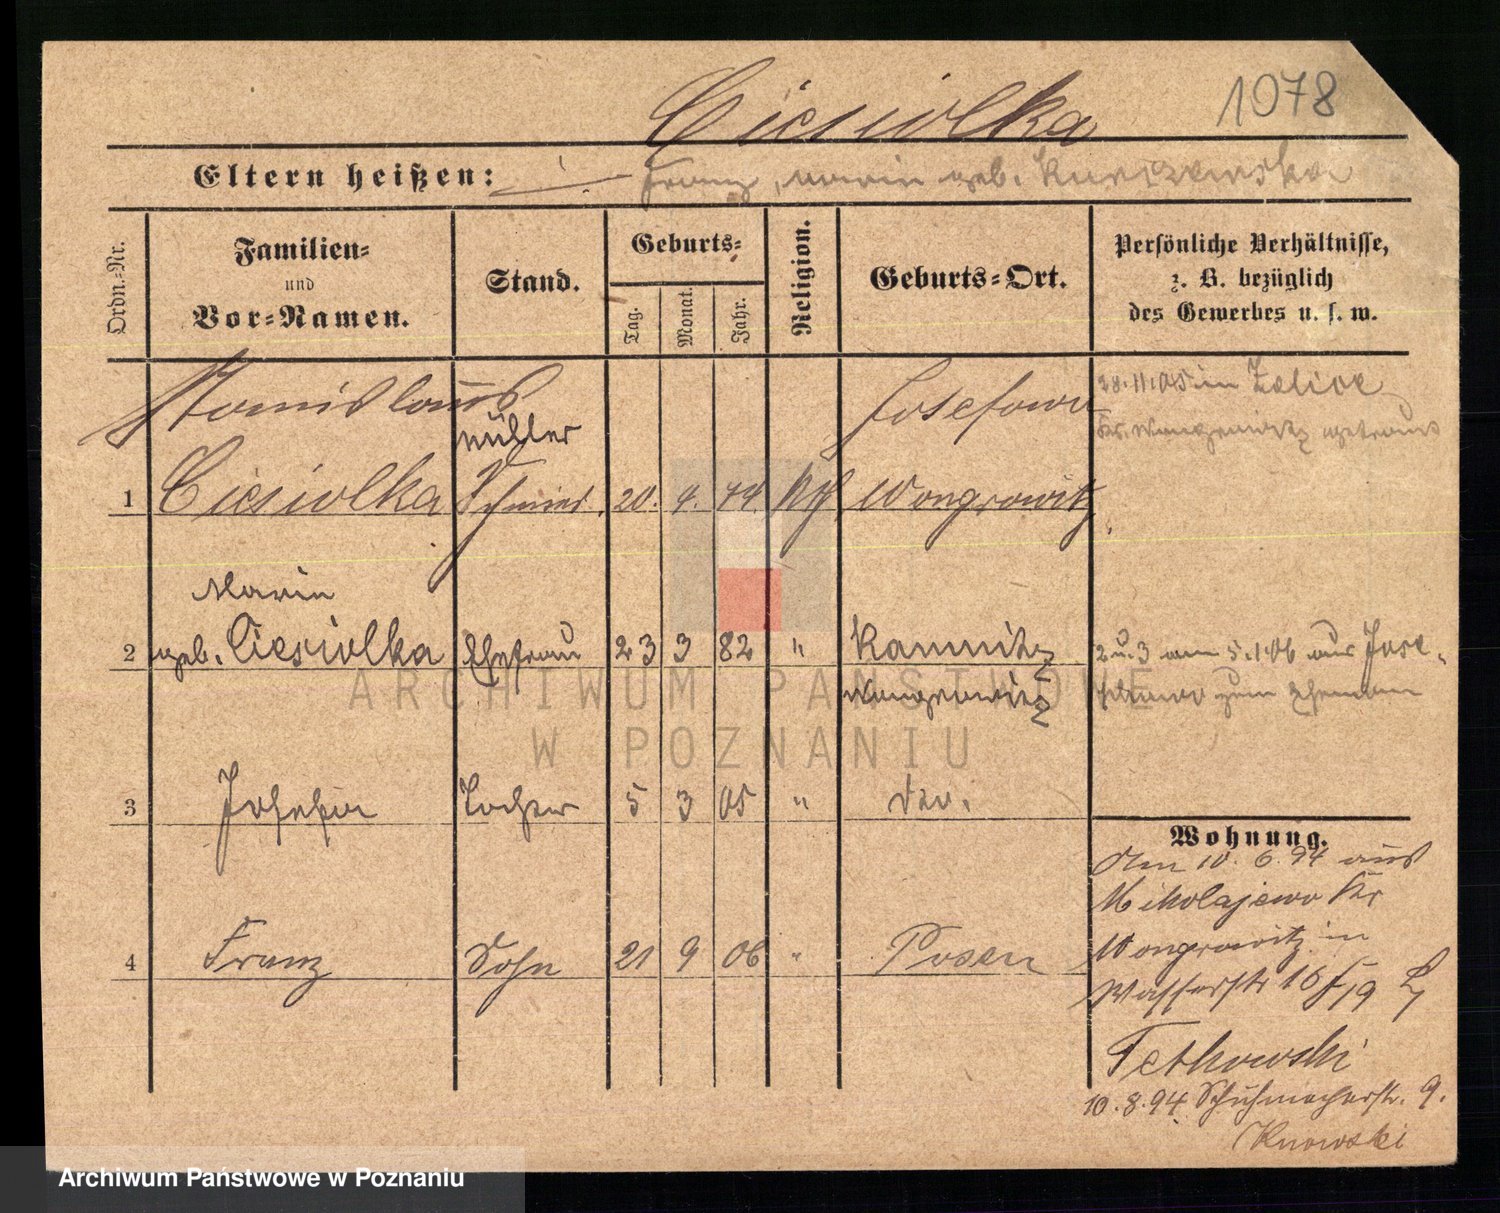 Ciesiolka
1078
Eltern heißen: Franz, Marie geb. Kurczewska
Ordn.=Nr.
Familien=
und
Vor=Namen.
Stand.
Geburts=
Tag.
Monat.
Jahr.
Religion.
Geburts=Ort.
Persönliche Verhältnisse,
z. B. bezüglich
des Gewerbes u. s. w.
Stanislaus
Müller
Josefowo
28.11.05 in Zelice
Kr. Wongrowitz getraut
1 Ciesiolka Schmied. 20. 4. 74 kth Wongrowitz
Maria
2 geb. Ciesiolka Ehefrau 23 3 82 " Kamnitz
Wongrowitz
2 u. 3 am 5.1.06 aus Jose-
zum Ehemann
3 Josefa Tochter 5 3 05 "
4 Franz Sohn 21 9 06 " Posen
Wohnung.
Am 10. 6. 94 aus
Mikolajewo Kr
Wongrowitz in
Wasserstr 16 b/
Tetkowski
10.8.94. Schuhmacherstr. 9.
Knowski
ARCHIWUM PAŃSTWOWE
W POZNANIU
Archiwum Państwowe w Poznaniu